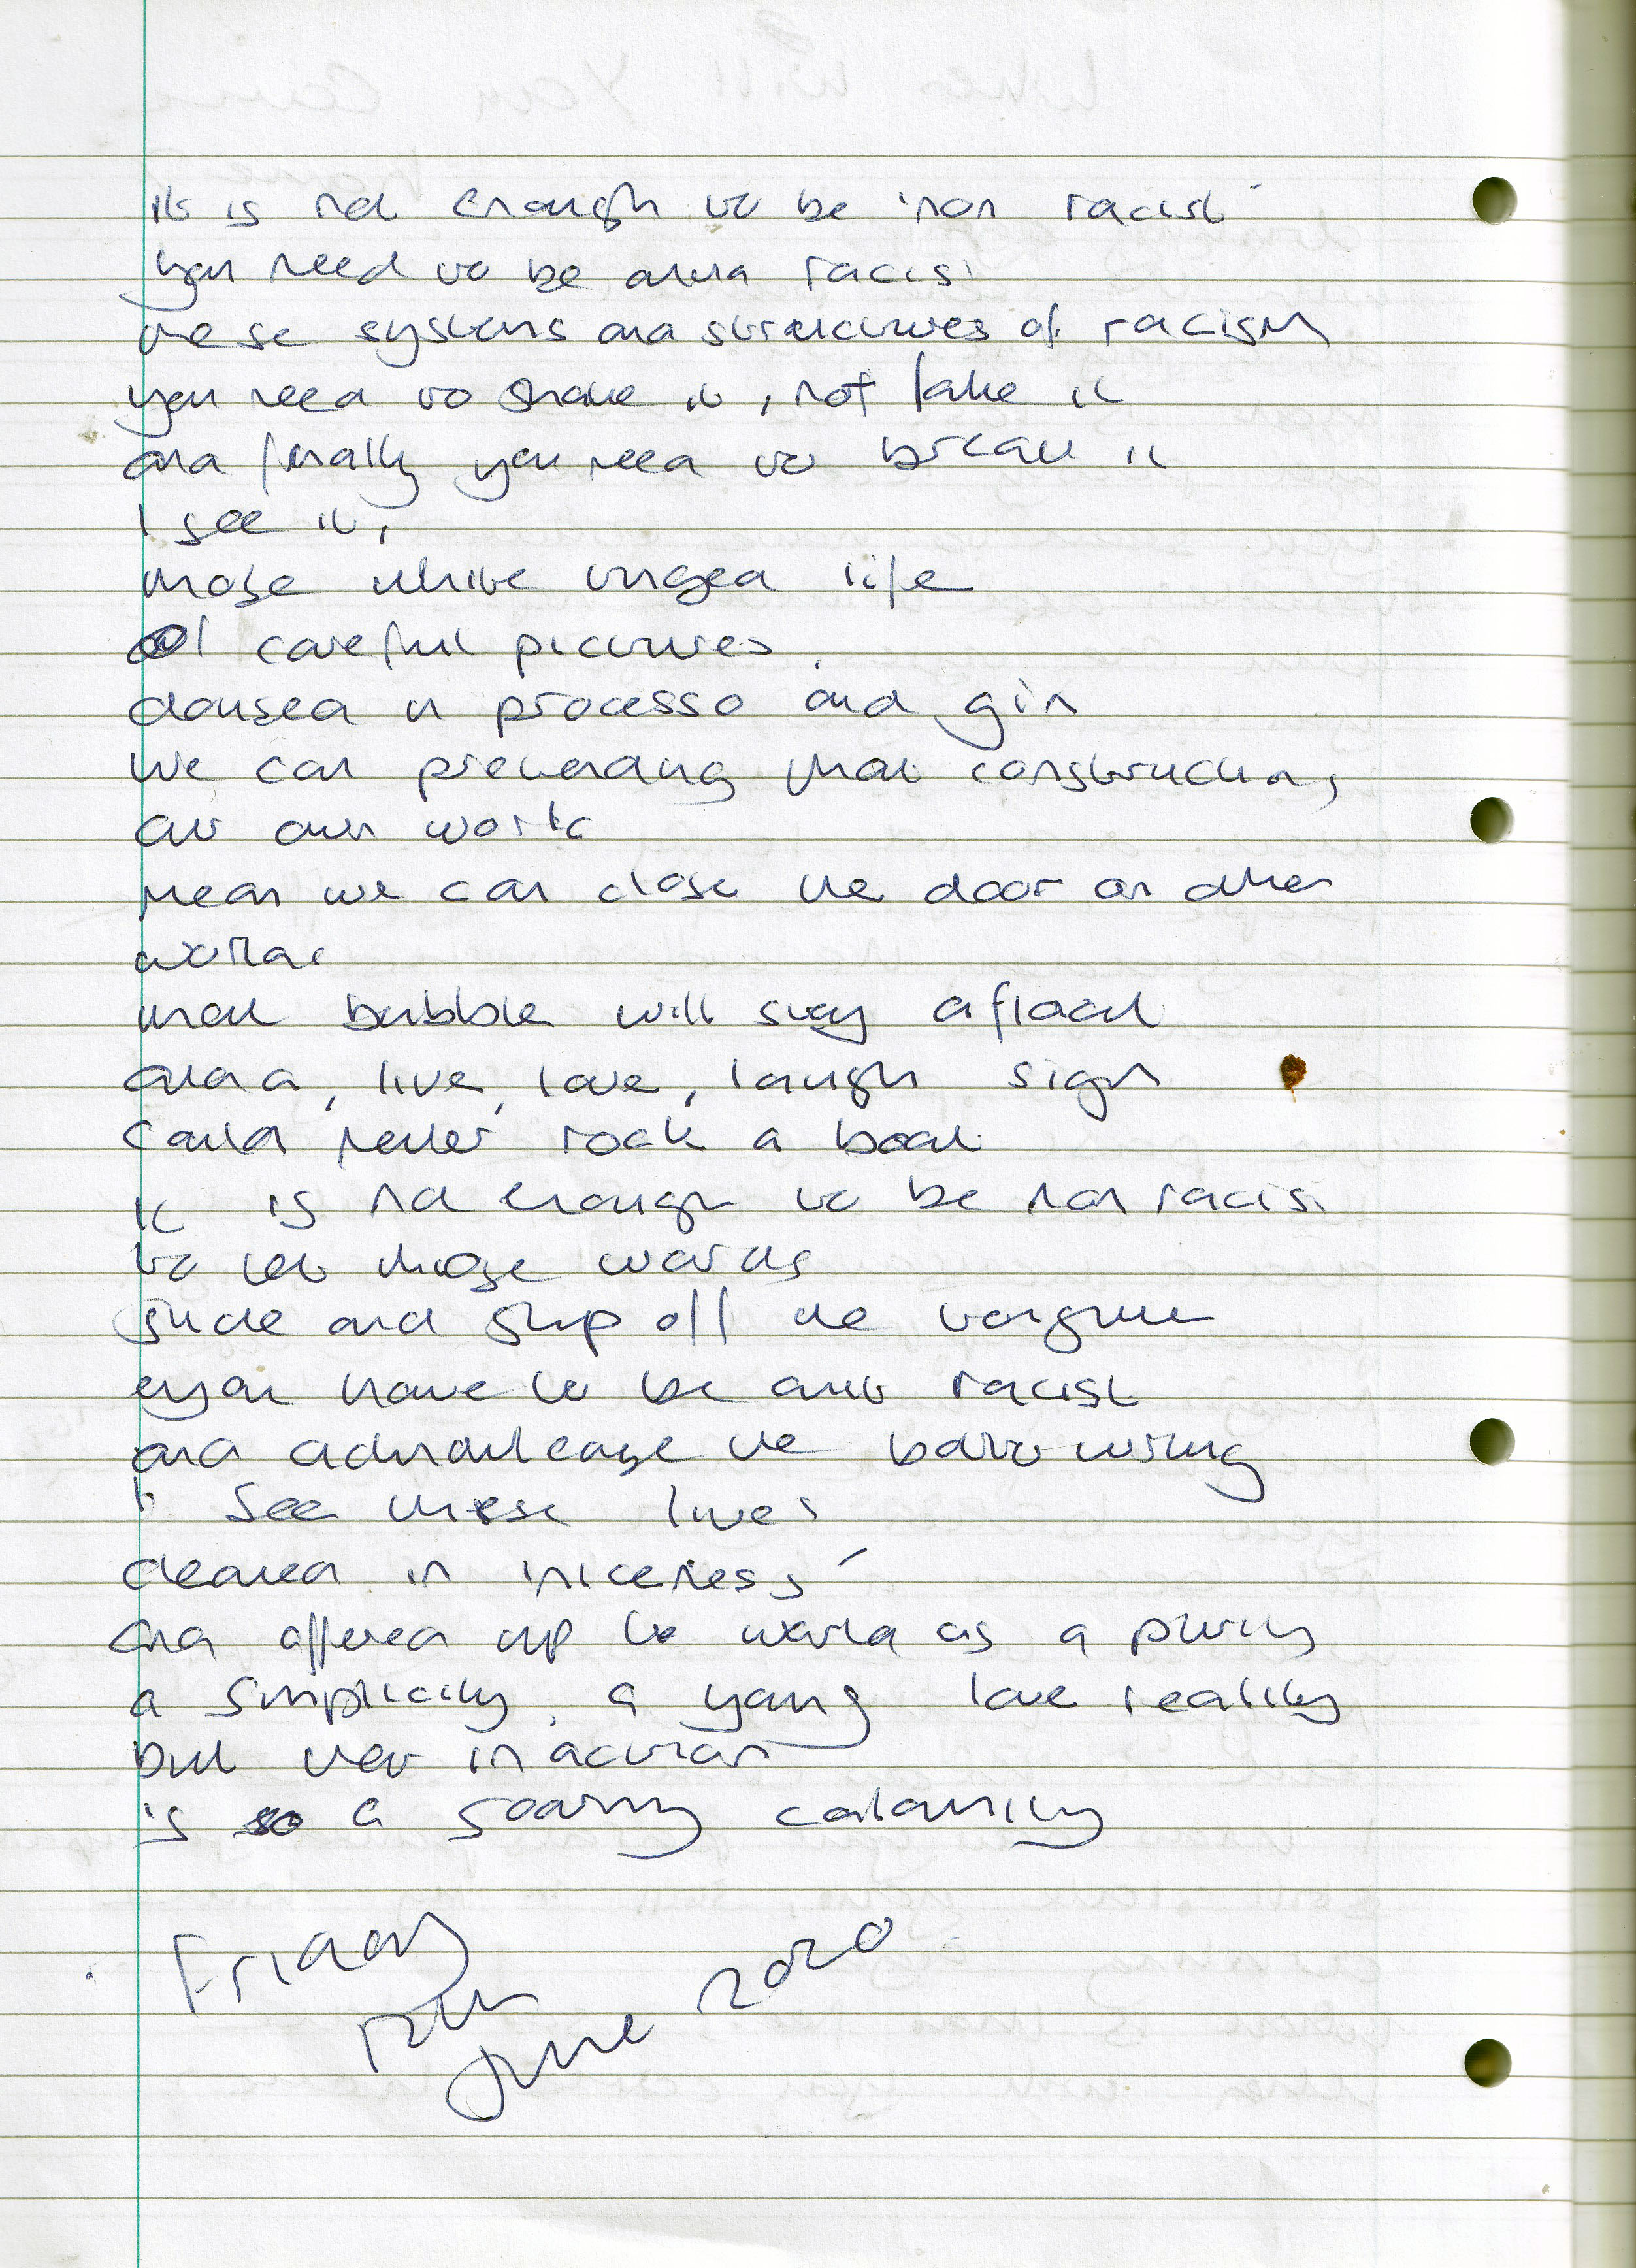 it is not enough to be 'non racist'
you need to be anti racist
these systems and structures of racism
you need to shake it, not fake it
and finally you need to break it
I see it,
those white tinged life
of careful pictures.
doused in prosecco and gin
We can pretending that construction,
at our work
mean we can close the door on other
worlds
that bubble will stay afloat
and a, live, love, laugh sign
could never rock a boat
it is not enough to be non racist
to let those words
slide and slip off the tongue
you have to be anti racist
and acknowledge the
I see these lives
in 'niceness'
and offered up to world as a purity
a simplicity, a young love reality
but that inaction
is a calamity
Friday
12th
June 2020